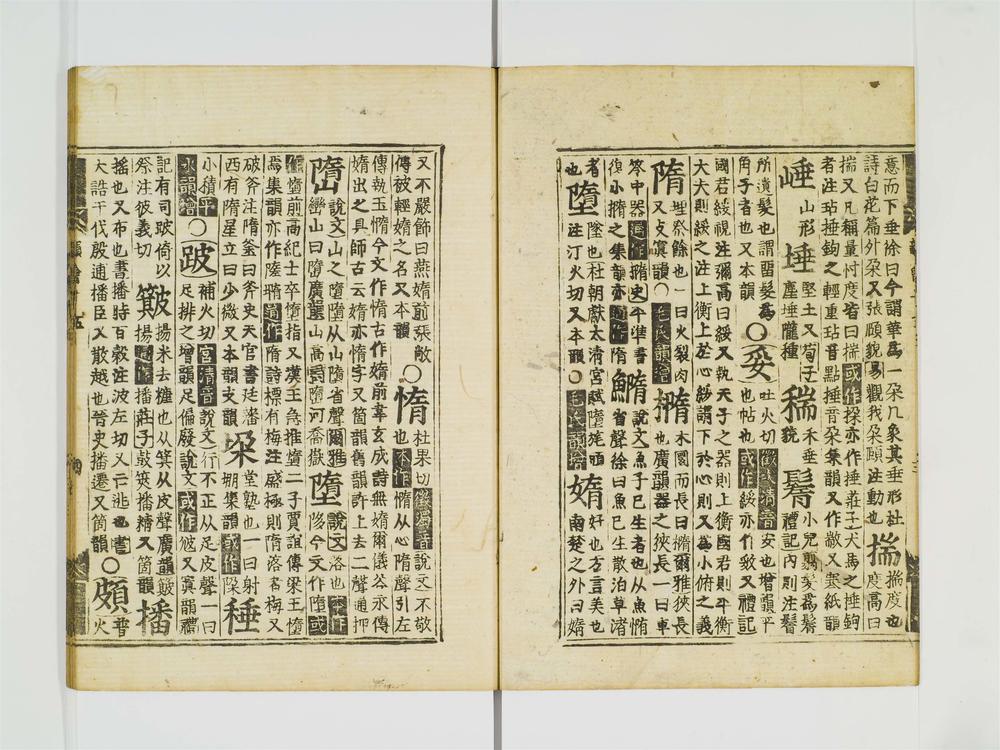 意而下垂徐曰今謂華爲一朶几象其垂形杜
詩白花簷外朶又張頤貌易觀我朶頤注動也
揣 揣度也度高曰
揣又凡稱量忖度皆曰揣或作㪜亦作捶莊子犬馬之捶鉤
者注玷捶鉤之輕重玷音點捶音朶集韻又作敪又紙韻
崜 山形 埵 堅土又荀子塵埵隴種 禾垂貌 鬌 小兒翦髮爲鬌禮記內則注鬌
所遺髮也謂畱髮爲角子者也又本韻
○妥 吐火切徵次清音安也增韻平也帖也或作綏亦作又禮記
國君綏視注彌高曰綏又執天子之器則上衡國君則平衡
大夫則綏之注上衡上於心綏謂下於心則又爲小俯之義
隋 埋祭餘也一曰火裂肉又支寘韻○毛氏韻增
撱 木圜而長曰撱爾雅狹長也廣韻器之狹長一曰車
笭中器通作撱史平準書復小撱之集韻亦通作隋
說文魚子已生者也从魚惰省聲徐曰魚已生散泊草渚者也
墮 墜也杜朝獻太清宮賦墮注汀火切又本韻○毛氏韻增
媠 好也方言美也南楚之外曰媠
又不嚴飾曰燕媠前張敞傳被輕媠之名又本韻
○惰 杜果切徵濁音說文不敬也本作憜从心隋聲引左
傳執玉憜今文作惰古作媠前韋玄成詩無媠爾儀谷永傳
媠出之具師古云媠亦惰字又舊韻古韻許上去二聲通押
嶞 說文山之墮墮从山隋省聲爾雅巒山曰嶞廣韻山高嶞隋河喬嶽
墮 說文落也本作陊今文作墮或
作墯前高紀士卒墮指又漢王急推墮二子賈誼傳梁王墮
焉集韻亦作陸隋通作隋詩摽有梅注盛極則隋落者梅又
破斧注隋銎曰斧史天官書廷藩西有隋星立曰少微又本韻支韻
垜 堂塾也一曰射堋集韻或作 種
小積平水韻增
○跛 補火切宮清音說文行不正从足皮聲一曰足排之增韻足偏廢說文或作又寘韻禮
記有司跛倚以祭注彼義切
簸 揚米去糠也从箕从皮聲廣韻簸揚通作播莊子鼓筴播精又箇韻 播
搖也又布也書播時百穀注波左切又云逃也書
大誥于伐殷逋播臣又散越也晉史播遷又箇韻
○頗 普火